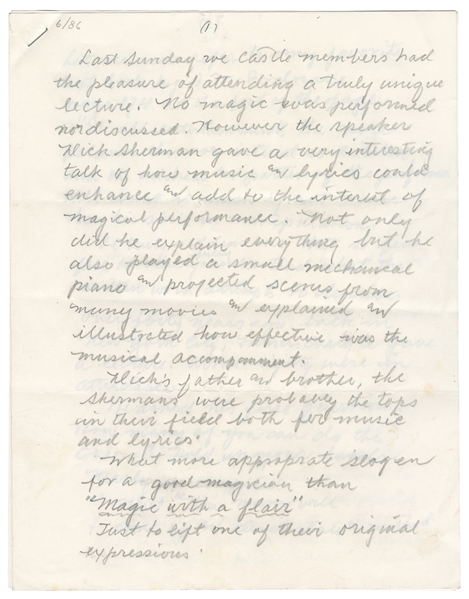 6/86 (1)
Last Sunday we Castle members had
the pleasure of attending a truly unique
lecture. No magic was performed
nor discussed. However the speaker
Dick Sherman gave a very interesting
talk of how music an lyrics could
enhance an add to the interest of
magical performance. Not only
did he explain everything but he
also played a small mechanical
piano an projected scenes from
many movies an explained an
illustrated how effective was the
musical accompanment.
Dick's father an brother, the
Shermans were probably the tops
in their field both for music
and lyrics.
What more approprate slogen
for a good magician than
"Magic with a flair"
Just to lift one of their original
expressions.